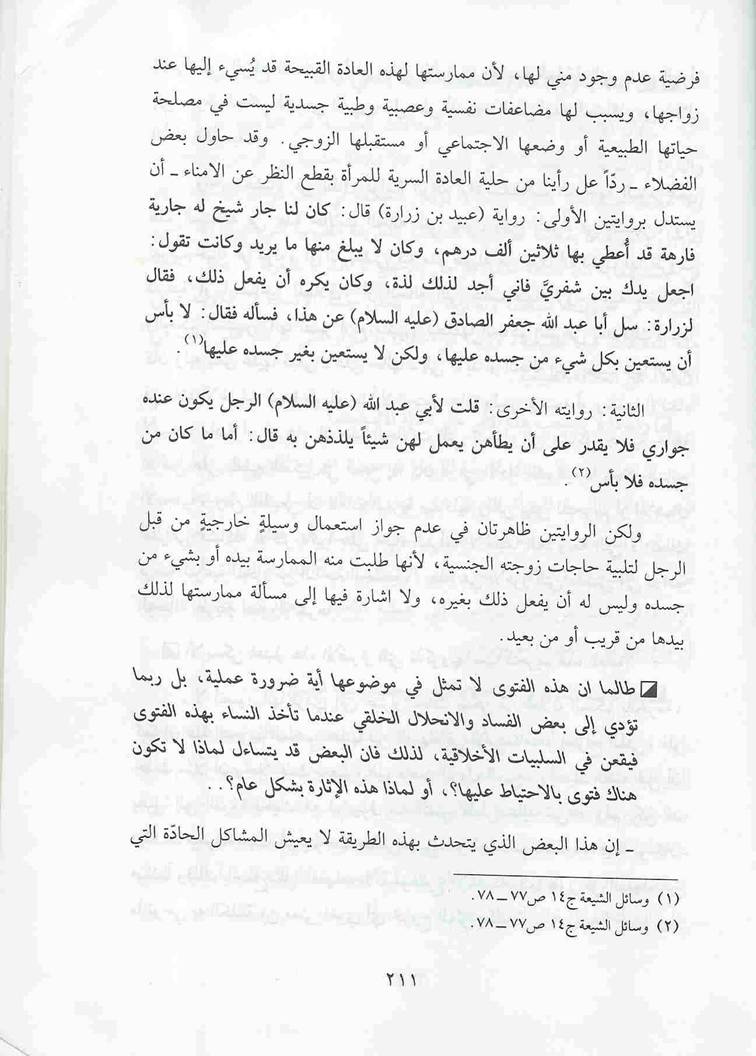 فرضية عدم وجود مني لها، لأن ممارستها لهذه العادة القبيحة قد يُسيء إليها عند
زواجها، ويسبب لها مضاعفات نفسية وعصبية وطبية جسدية ليست في مصلحة
حياتها الطبيعية أو وضعها الاجتماعي أو مستقبلها الزوجي. وقد حاول بعض
الفضلاء ـ ردّاً عل رأينا من حلية العادة السرية للمرأة بقطع النظر عن الامناء ـ أن
يستدل بروايتين الأولى: رواية (عبيد بن زرارة) قال: كان لنا جار شيخ له جارية
فارهة قد أُعطي بها ثلاثين ألف درهم، وكان لا يبلغ منها ما يريد وكانت تقول:
اجعل يدك بين شفريَّ فاني أجد لذلك لذة، وكان يكره أن يفعل ذلك، فقال
لزرارة: سل أبا عبد الله جعفر الصادق (عليه السلام) عن هذا، فسأله فقال: لا بأس
أن يستعين بكل شيء من جسده عليها، ولكن لا يستعين بغير جسده عليها(١).
الثانية: روايته الأخرى: قلت لأبي عبد الله (عليه السلام) الرجل يكون عنده
جواري فلا يقدر على أن يطأهن يعمل لهن شيئاً يلذذهن به قال: أما ما كان من
جسده فلا بأس(٢).
ولكن الروايتين ظاهرتان في عدم جواز استعمال وسيلةٍ خارجيةٍ من قبل
الرجل لتلبية حاجات زوجته الجنسية، لأنها طلبت منه الممارسة بيده أو بشيء من
جسده وليس له أن يفعل ذلك بغيره، ولا اشارة فيها إلى مسألة ممارستها لذلك
بيدها من قريب أو من بعيد.
طالما ان هذه الفتوى لا تمثل في موضوعها أية ضرورة عملية، بل ربما
تؤدي إلى بعض الفساد والانحلال الخلقي عندما تأخذ النساء بهذه الفتوى
فيقعن في السلبيات الأخلاقية، لذلك فان البعض قد يتساءل لماذا لا تكون
هناك فتوى بالاحتياط عليها؟، أو لماذا هذه الإثارة بشكل عام؟..
ـ إن هذا البعض الذي يتحدث بهذه الطريقة لا يعيش المشاكل الحادّة التي
(١) وسائل الشيعة ج١٤ ص٧٧ ـ ٧٨.
(٢) وسائل الشيعة ج١٤ ص٧٧ ـ ٧٨.
٢١١